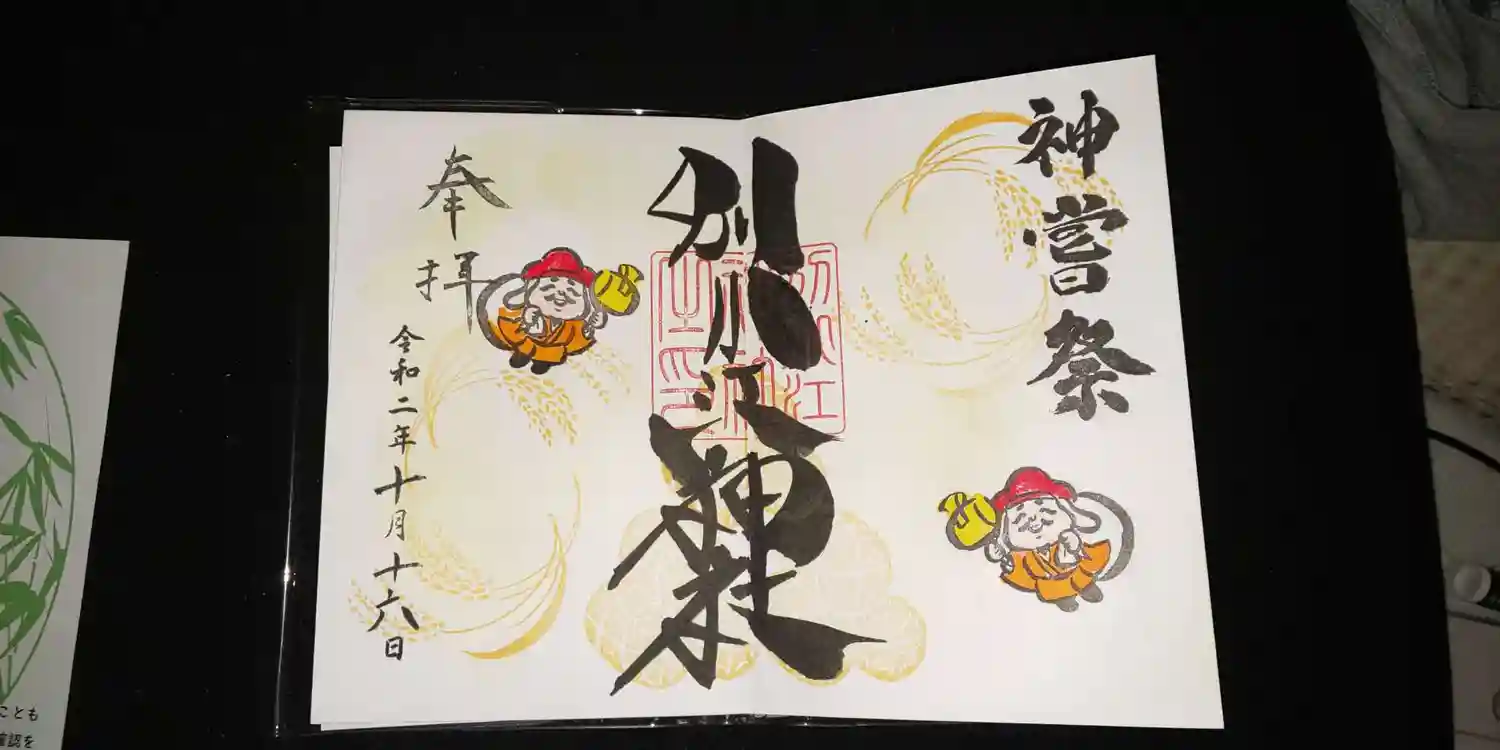 神嘗祭
別小江神社
奉拝
令和二年十月十六日
ことも
確認を